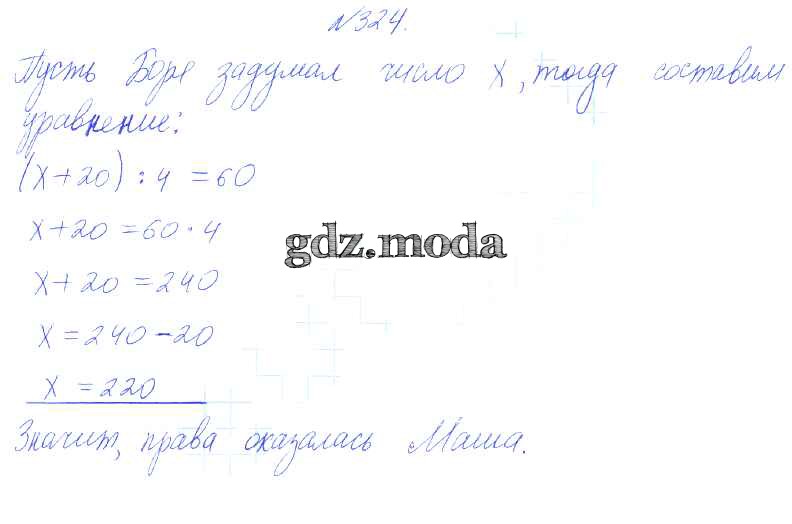 №324.
Пусть Боря задумал число x, тогда составим
уравнение:
(x+20) : 4 = 60
x+20 = 60 · 4
gdz.moda
x+20 = 240
x = 240 - 20
x = 220
Значит, права оказалась Маша.